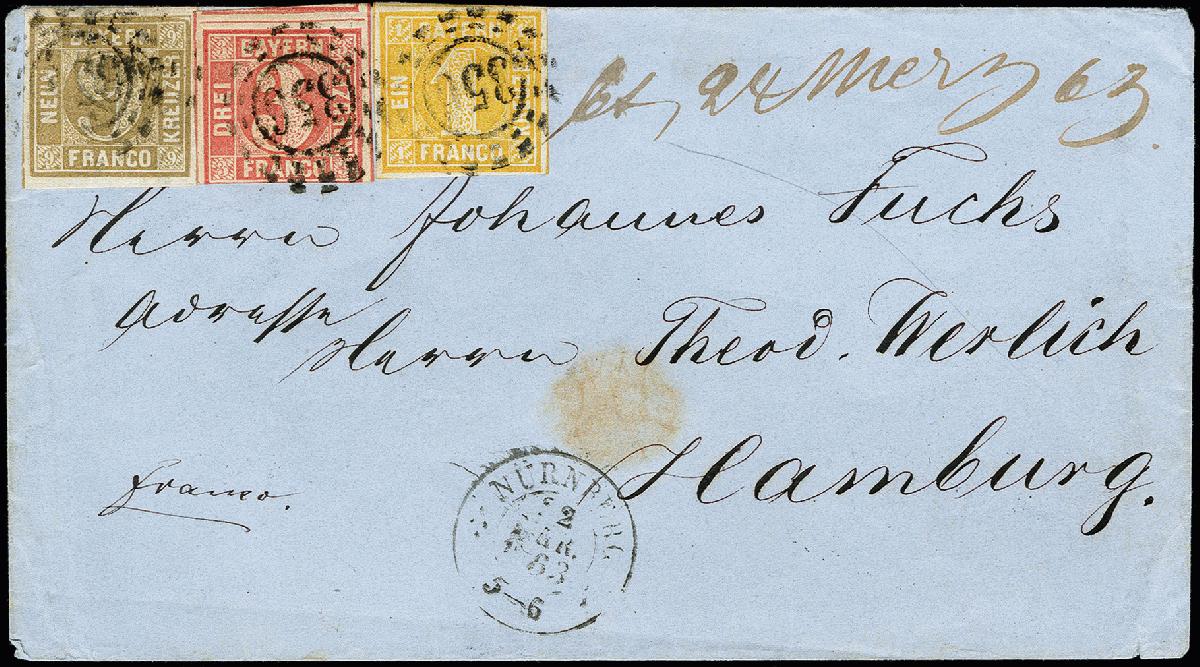 BAYERN
NEUN
KREUZER
FRANCO
9 9
BAYERN
DREI
FRANCO
BAYERN
EIN
FRANCO
1 1
24 Merz 63
Herrn Johannes Fuchs
Adresse
Herrn Theod. Werlich
Hamburg.
Franco.
NÜRNBERG
2
MAR.
63
5-6